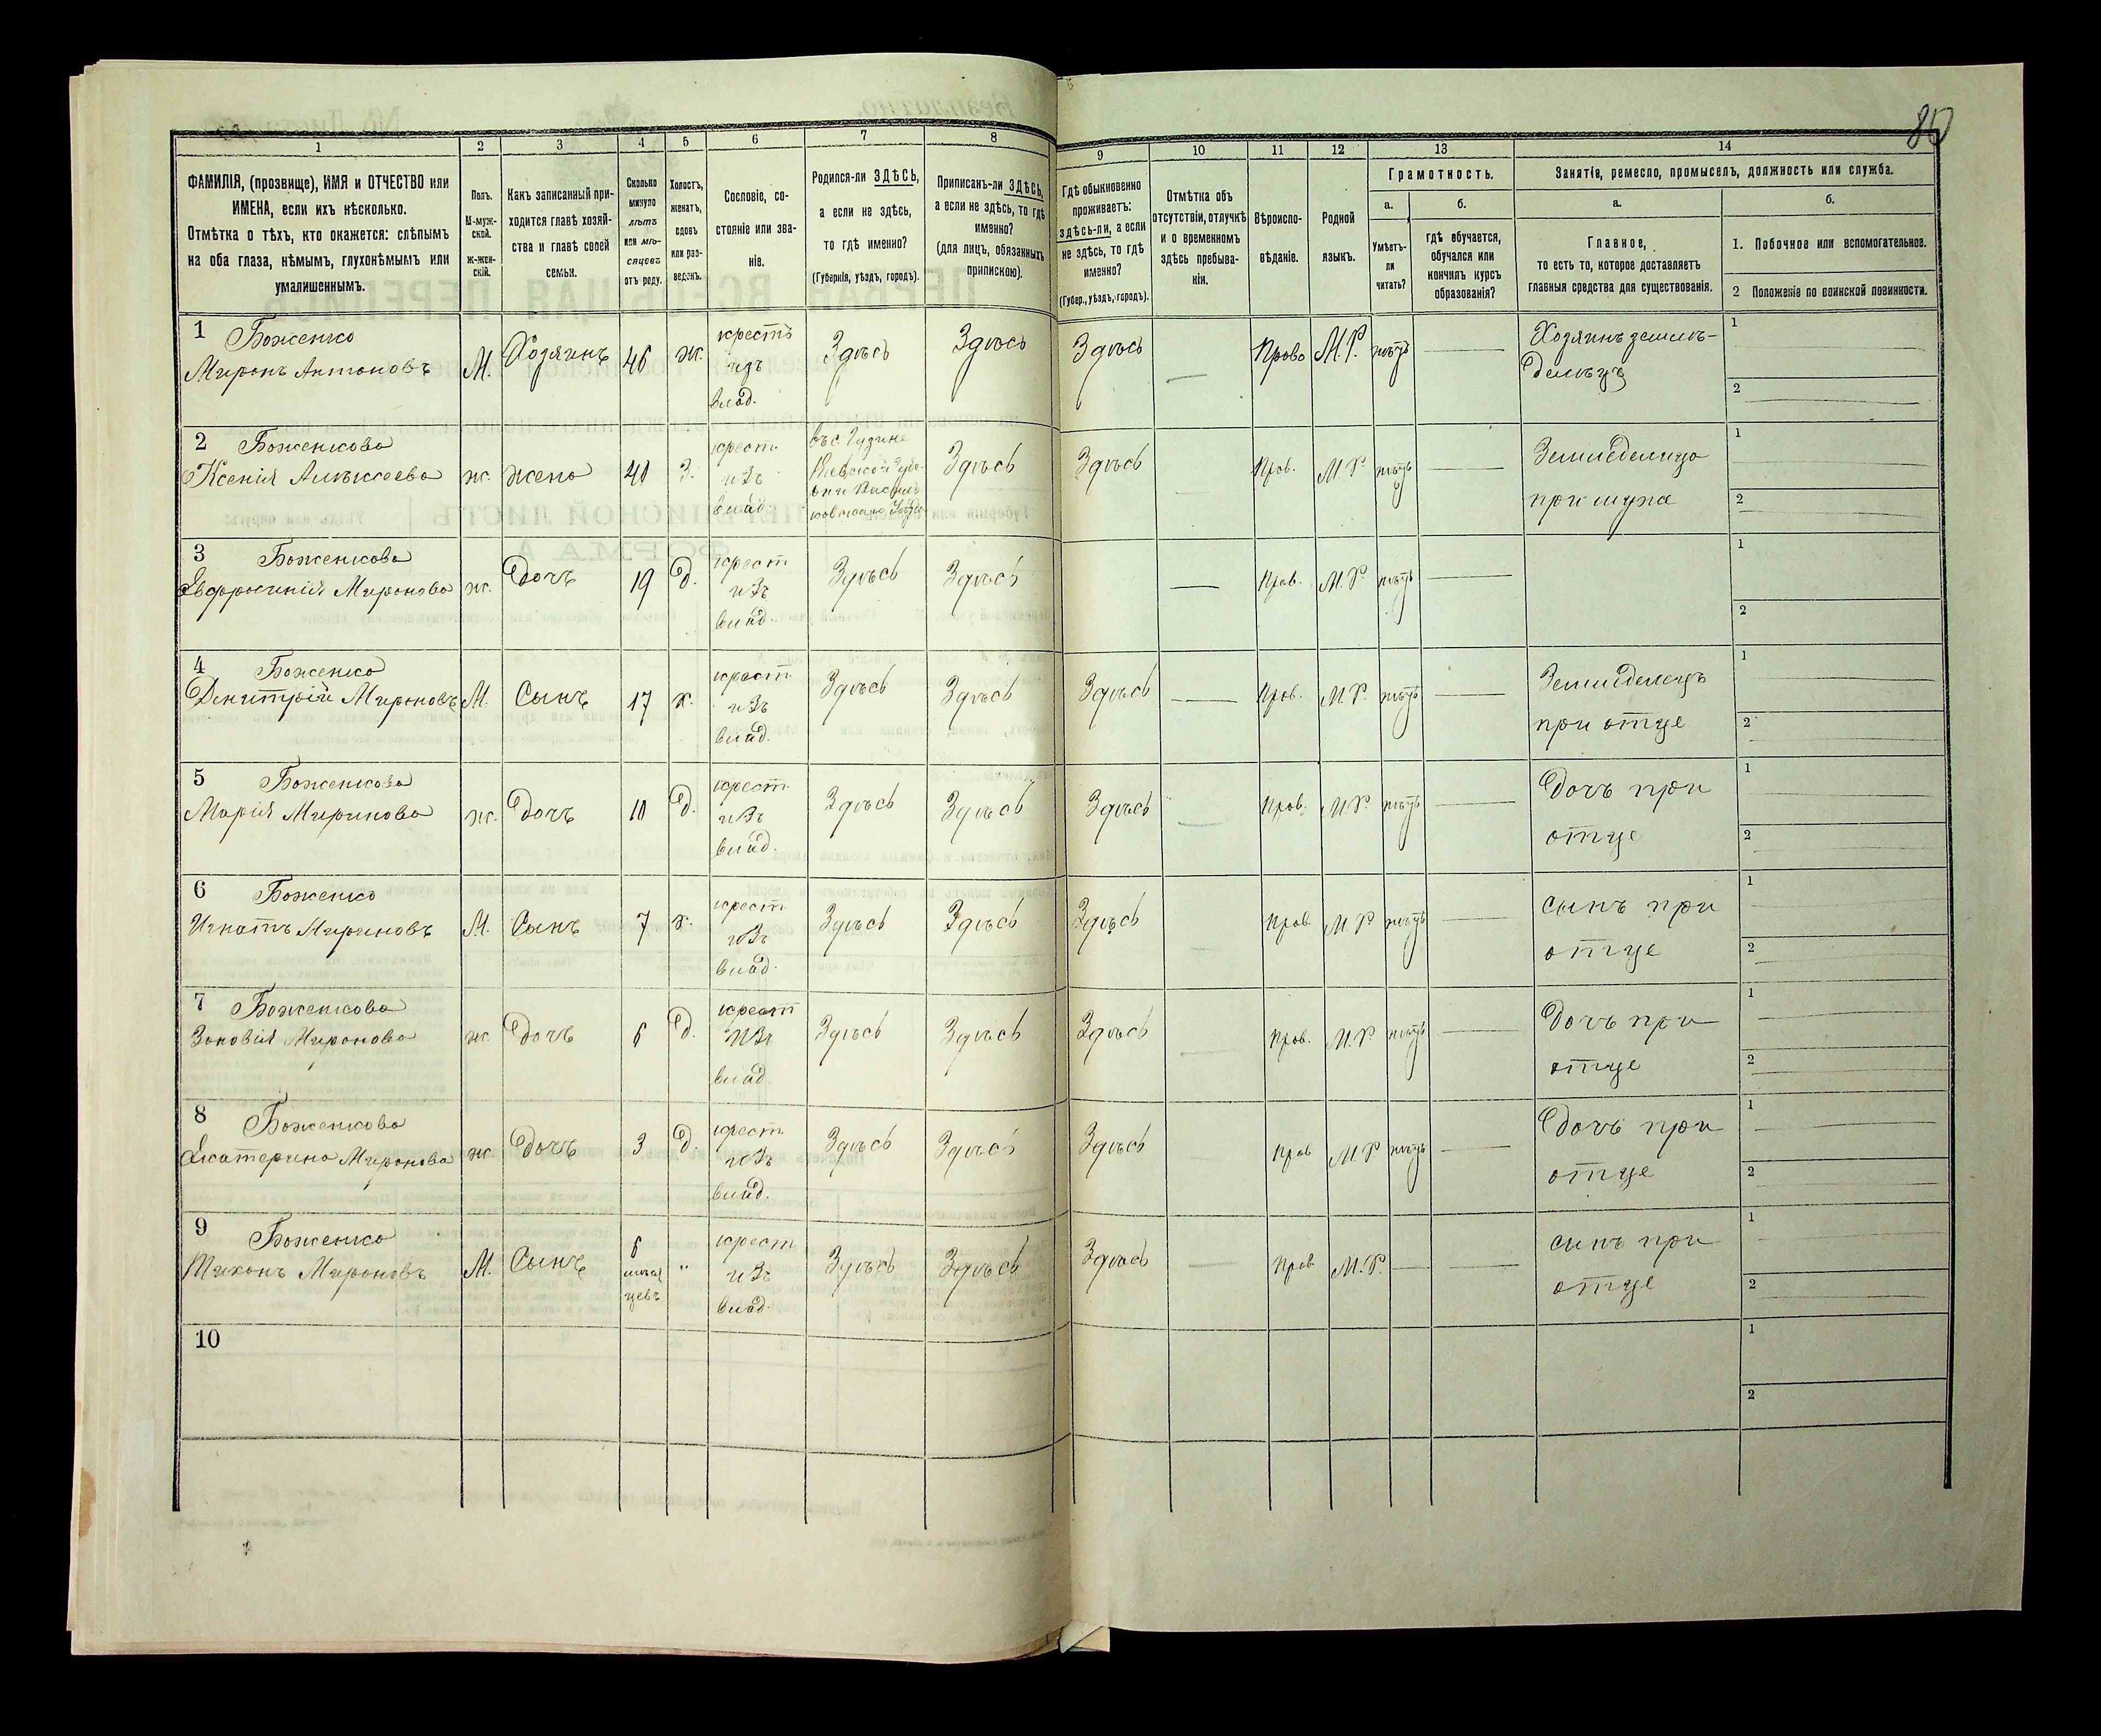 80
1 2 3 4 5 6 7 8 9 10 11 12 13 14
ФАМИЛІЯ, (прозвище), ИМЯ и ОТЧЕСТВО или
ИМЕНА, если ихъ нѣсколько.
Отмѣтка о тѣхъ, кто окажется: слѣпымъ
на оба глаза, нѣмымъ, глухонѣмымъ или
умалишеннымъ.
Полъ.
М-муж-
ской.
ж-жен-
скій.
Какъ записанный при-
ходится главѣ хозяй-
ства и главѣ своей
семьи.
Сколько
минуло
лѣтъ
или мѣ-
сяцевъ
отъ роду.
Холостъ,
женатъ,
вдовъ
или раз-
веденъ.
Сословіе, со-
стояніе или зва-
ніе.
Родился-ли ЗДѢСЬ,
а если не здѣсь,
то гдѣ именно?
(Губернія, уѣздъ, городъ).
Приписанъ-ли ЗДѢСЬ,
а если не здѣсь, то гдѣ
именно?
(для лицъ, обязанныхъ
припискою).
Гдѣ обыкновенно
проживаетъ:
здѣсь-ли, а если
не здѣсь, то гдѣ
именно?
(Губер., уѣздъ, городъ).
Отмѣтка объ
отсутствіи, отлучкѣ
и о временномъ
здѣсь пребыва-
ніи.
Вѣроиспо-
вѣданіе.
Родной
языкъ.
Грамотность.
а.
Умѣетъ-
ли
читать?
б.
гдѣ обучается,
обучался или
кончилъ курсъ
образованія?
Занятіе, ремесло, промыселъ, должность или служба.
а.
Главное,
то есть то, которое доставляетъ
главныя средства для существованія.
б.
1. Побочное или вспомогательное.
2 Положеніе по воинской повинности.
1 Боженко
Миронъ Антоновъ М. Хозяинъ 46 ж.
крестъ
изъ
влад.
Здѣсь Здѣсь Здѣсь — Право М.Р. нѣтъ —
Хозяинъ землѣ-
дѣлецъ
1
2
2 Боженкова
Ксенія Алексѣева ж. жена 40 З.
крест
изъ
влад.
въ с.
Кіевской Губер
Здѣсь Здѣсь — Прав. М.Р. нѣтъ —
Земледелица
при мужѣ
1
2
3 Боженкова
Евфросинія Миронова ж. Дочь 19 д.
крест
изъ
влад.
Здѣсь Здѣсь — Прав. М.Р. нѣтъ —
1
2
4 Боженко
Димитрій Мироновъ М. Сынъ 17 х.
крест
изъ
влад.
Здѣсь Здѣсь Здѣсь — Прав. М.Р. нѣтъ —
Земледелецъ
при отце
1
2
5 Боженкова
Марія Миронова ж. Дочь 10 д.
крест
изъ
влад.
Здѣсь Здѣсь Здѣсь — Прав. М.Р. нѣтъ —
Дочь при
отце
1
2
6 Боженко
Игнатъ Мироновъ М. Сынъ 7 х.
крест
изъ
влад.
Здѣсь Здѣсь Здѣсь — Прав М.Р. нѣтъ —
сынъ при
отце
1
2
7 Боженкова
Зоновія Миронова ж. Дочь 6 д.
крест
изъ
влад.
Здѣсь Здѣсь Здѣсь — Прав. М.Р. нѣтъ —
Дочь при
отце
1
2
8 Боженкова
Екатерина Миронова ж. Дочь 3 д.
крест
изъ
влад.
Здѣсь Здѣсь Здѣсь — Прав М.Р. нѣтъ —
Дочь при
отце
1
2
9 Боженко
Тихонъ Мироновъ М. Сынъ
6
мѣся
цевъ
"
крест
изъ
влад.
Здѣсь Здѣсь Здѣсь — Прав М.Р. — —
сынъ при
отце
1
2
10
1
2